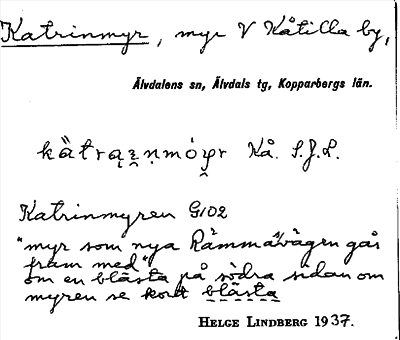 Katrinmyr, myr V Kåtilla by,
Älvdalens sn, Älvdals tg, Kopparbergs län.
Kå. S.J.L.
Katrinmyren G102
"myr som nya Rämmavägen går
fram med"
om en blästa på södra sidan om
myren se kort blästa
HELGE LINDBERG 1937.